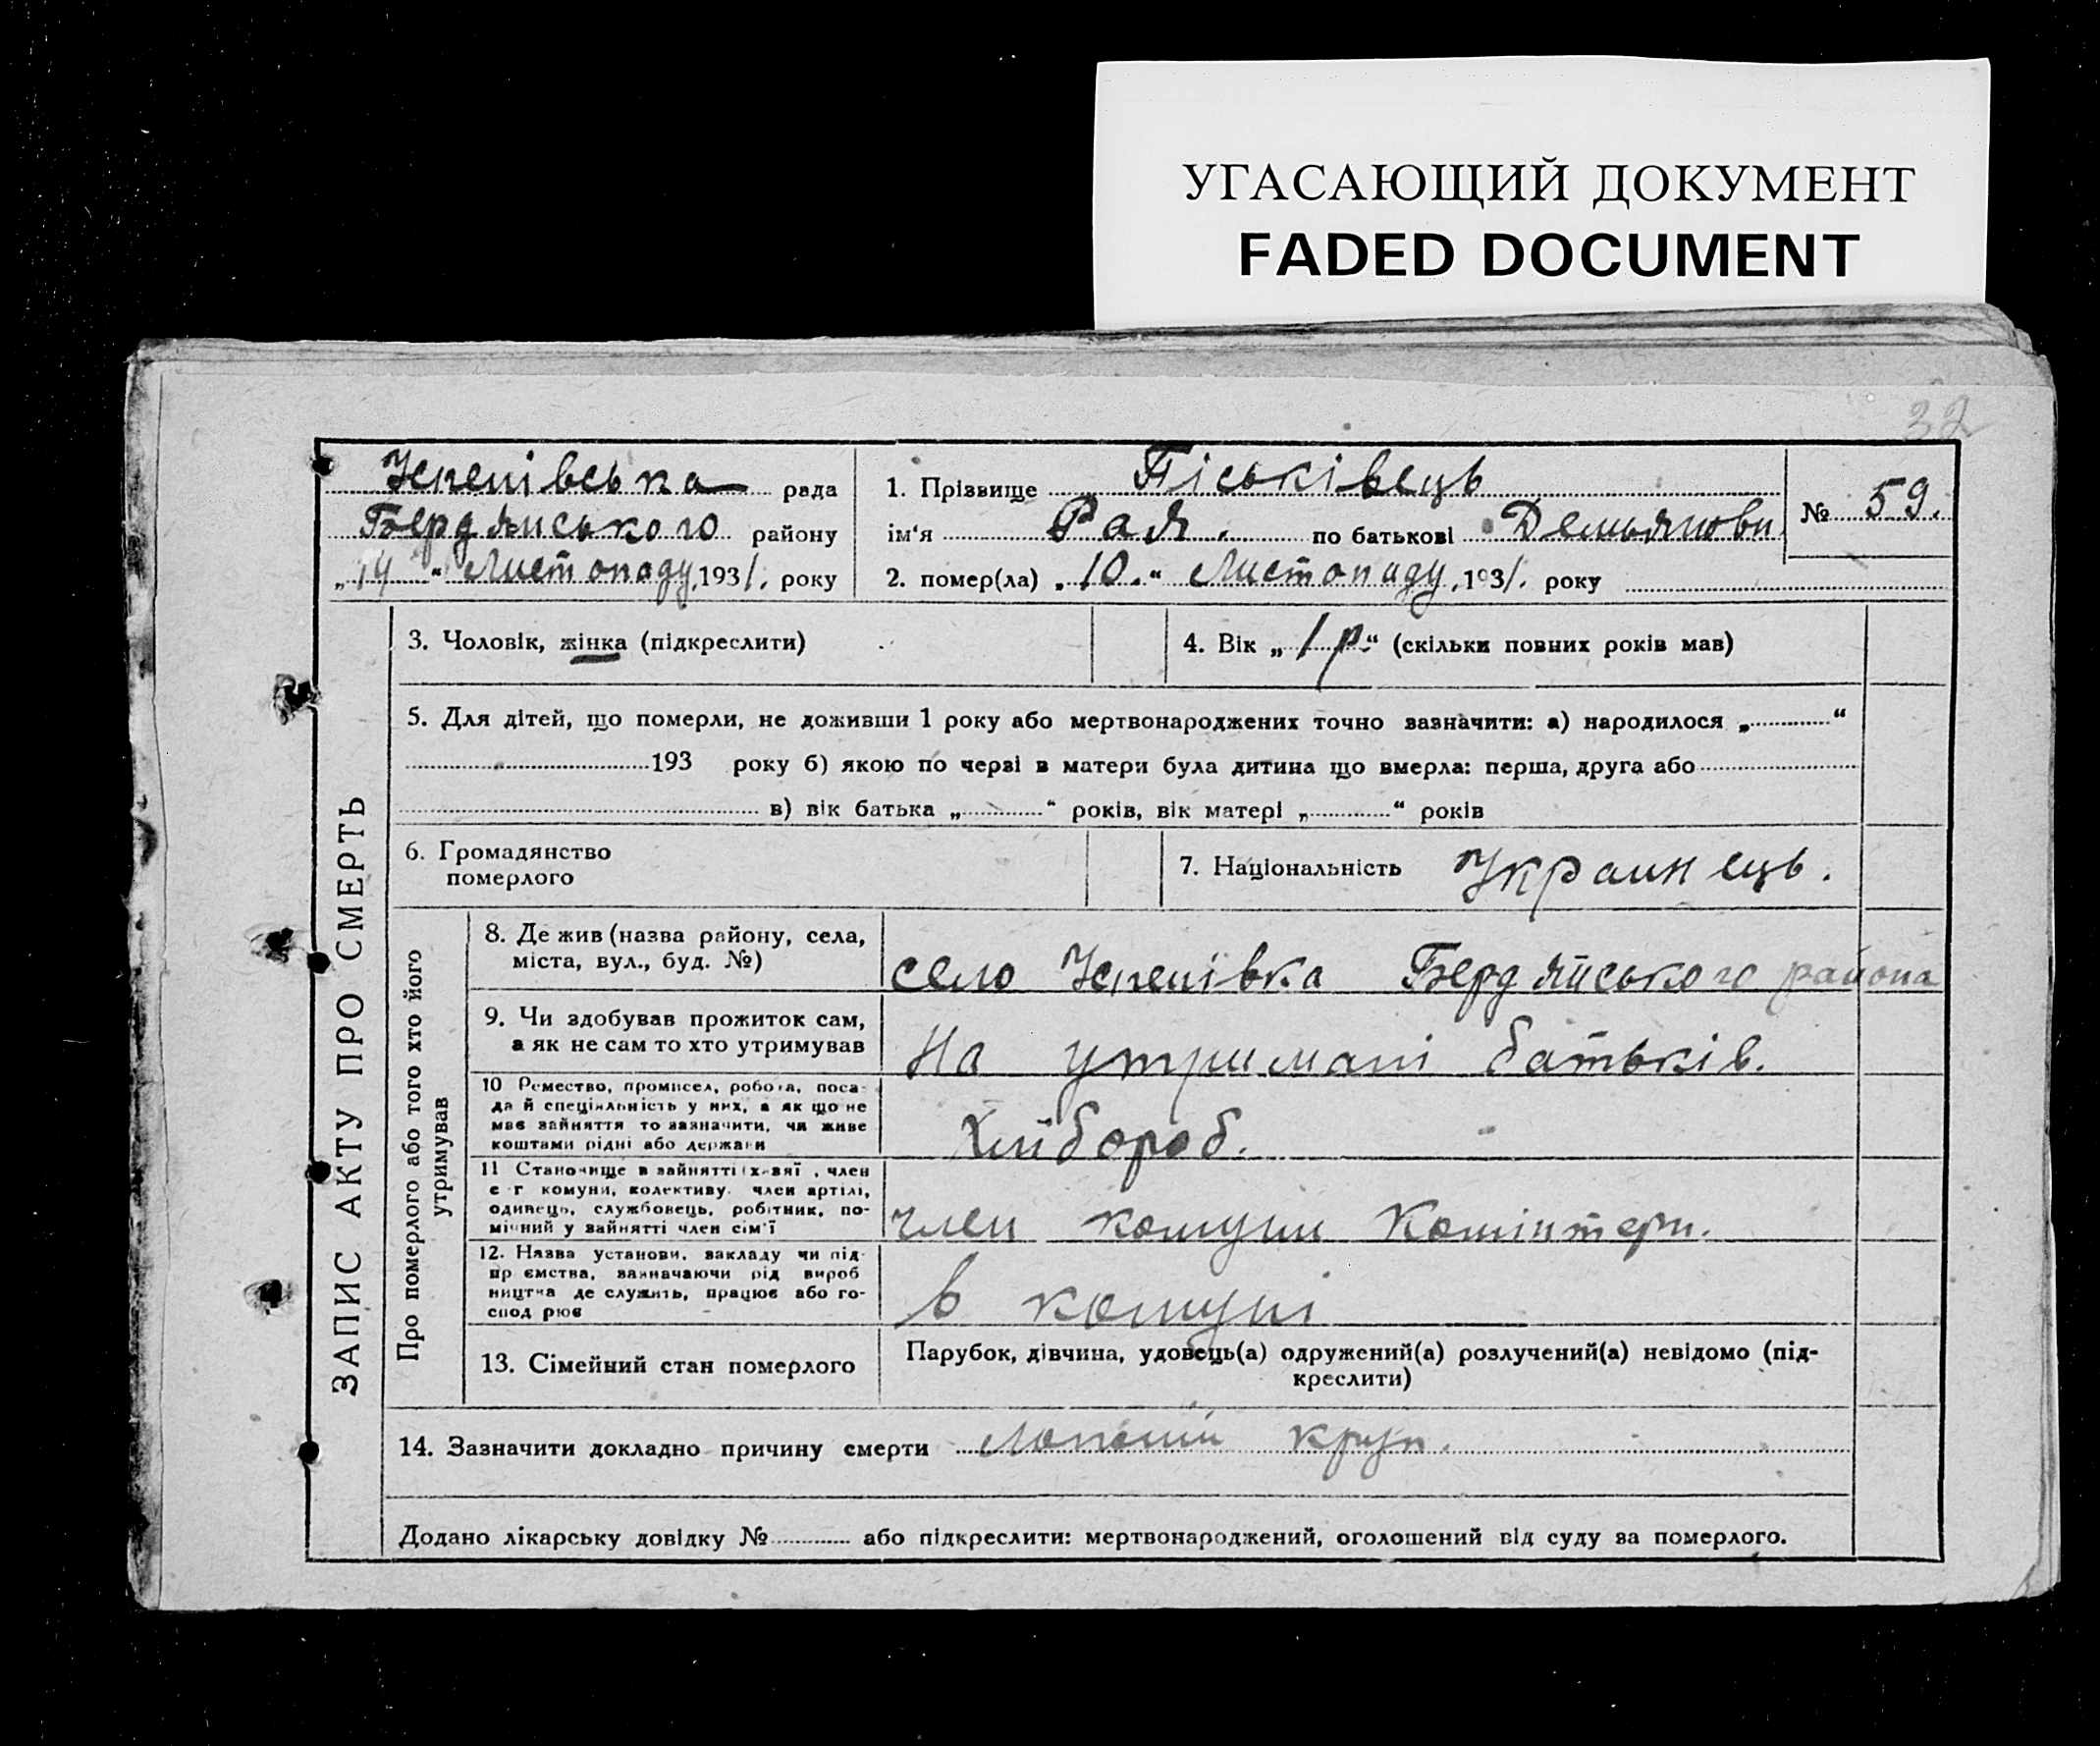 УГАСАЮЩИЙ ДОКУМЕНТ
FADED DOCUMENT
32
ЗАПИС АКТУ ПРО СМЕРТЬ
Успенівська рада
Бердянського району
„14“ Листопаду 1931. року
1. Прізвище Піськівець
ім‘я Рая. по батькові Демьянови
2. помер(ла) „10.“ Листопаду, 1931. року
№ 59.
3. Чоловік, жінка (підкреслити)
4. Вік „1 р.“ (скільки повних років мав)
5. Для дітей, що померли, не доживши 1 року або мертвонароджених точно зазначити: а) народилося „ “
193 року б) якою по черзі в матери була дитина що вмерла: перша, друга або
в) вік батька „ “ років, вік матері „ “ років
6. Громадянство
померлого
7. Національність Украинець.
Про померлого або того хто його
утримував
8. Де жив (назва району, села,
міста, вул., буд. №)
село Успенівка Бердянського района
9. Чи здобував прожиток сам,
а як не сам то хто утримував
На утримані батьків.
10 Ремество, промисел, робота, поса-
да й спеціяльність у них, а як що не
має зайняття то зазначити, чи живе
коштами рідні або держави
Хлібороб.
11 Становище в зайнятті (х-зяї , член
с г комуни, колективу. член артілі,
одинець, службовець, робітник, по-
мічний у зайнятті член сім‘ї
член комуни Комінтерн.
12. Назва установи, закладу чи під-
пр ємства, зазначаючи рід вироб
ництва де служить, працює або го-
спод рює
в комуні
13. Сімейний стан померлого
Парубок, дівчина, удовець(а) одружений(а) розлучений(а) невідомо (під-
креслити)
14. Зазначити докладно причину смерти круп.
Додано лікарську довідку № або підкреслити: мертвонароджений, оголошений від суду за померлого.